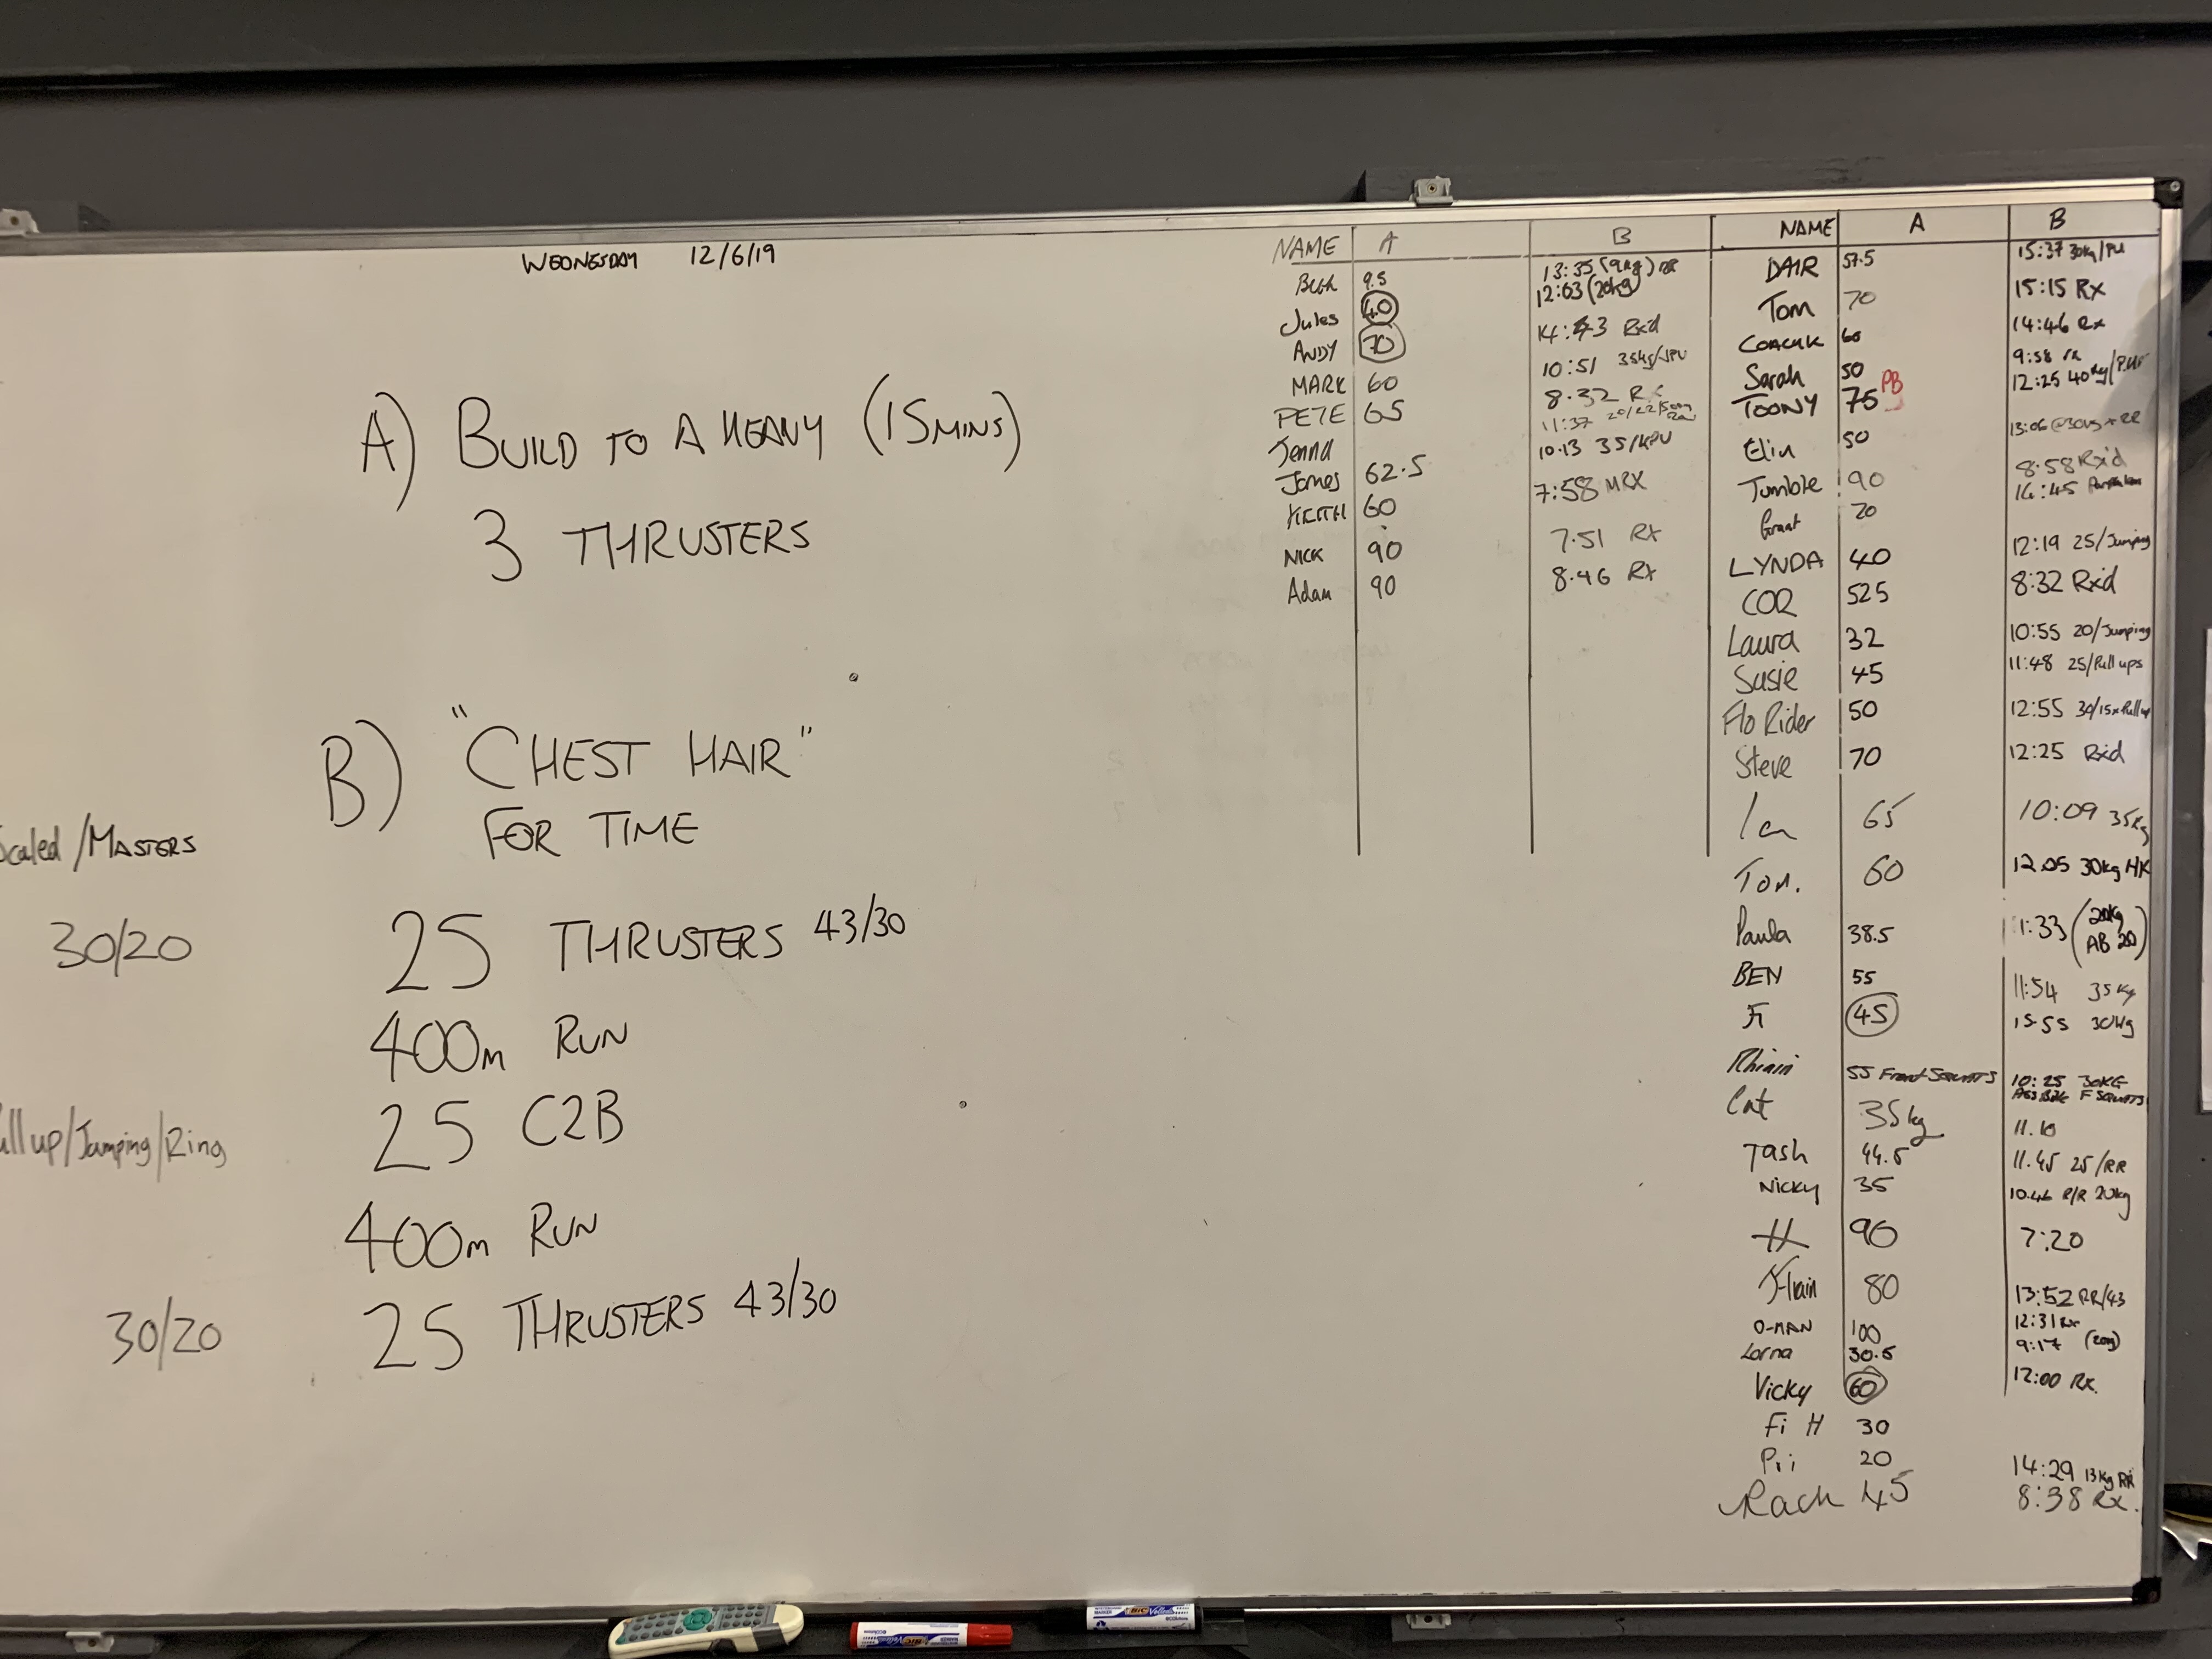 WEDNESDAY 12/6/19
A) BUILD TO A HEAVY (15MINS)
3 THRUSTERS
B) "CHEST HAIR"
FOR TIME
Scaled/MASTERS
30/20 25 THRUSTERS 43/30
400m RUN
ull up/Jumping/Ring 25 C2B
400m RUN
30/20 25 THRUSTERS 43/30
NAME A B
9.5 13:35 (9kg) RR
Jules 40 12:03 (20kg)
ANDY 70 Rxd
MARK 60 10:51 35kg/JPU
PETE 65 8.32 RX
Jenna 11:37
James 62.5 10.13 35/KPU
KEITH 60 7:58 MRX
NICK 90 7.51 RX
Adam 90 8.46 RX
NAME A B
DAIR 57.5 15:37 30kg/PU
Tom 70 15:15 Rx
COACHK 60 14:46 Rx
Sarah 50 9:58 rx
TOONY 75 PB 12:25 40kg
Elin 50 13:06 @30kg + RR
Tumble 90 8:58 Rx'd
Grant 70
LYNDA 40 12:19 25/Jumping
COR 525 8:32 Rxd
Laura 32 10:55 20/Jumping
Susie 45 11:48 25/Pull ups
Flo Rider 50 12:55 30/15x Pull up
Steve 70 12:25 Rxd
Ian 65 10:09 35kg
Tom. 60 12.05 30kg HK
Paula 38.5 1:33 (20kg AB 20)
BEN 55 11:54 35kg
Fi 45 15.55 30kg
Rhiain 55 Front SQUATS 10:25 30KG
F SQUATS
Cat 35kg 11.10
Tash 44.5 11.45 25/RR
NICKY 35 10.46 R/R 20kg
H 90 7:20
J-Train 80 13:52 RR/43
O-MAN 100 12:31 Rx
Lorna 30.5 9:17
Vicky 60 12:00 RX.
Fi H 30
Pri 20 14:29 13kg RR
Rach 45 8:38 Rx.